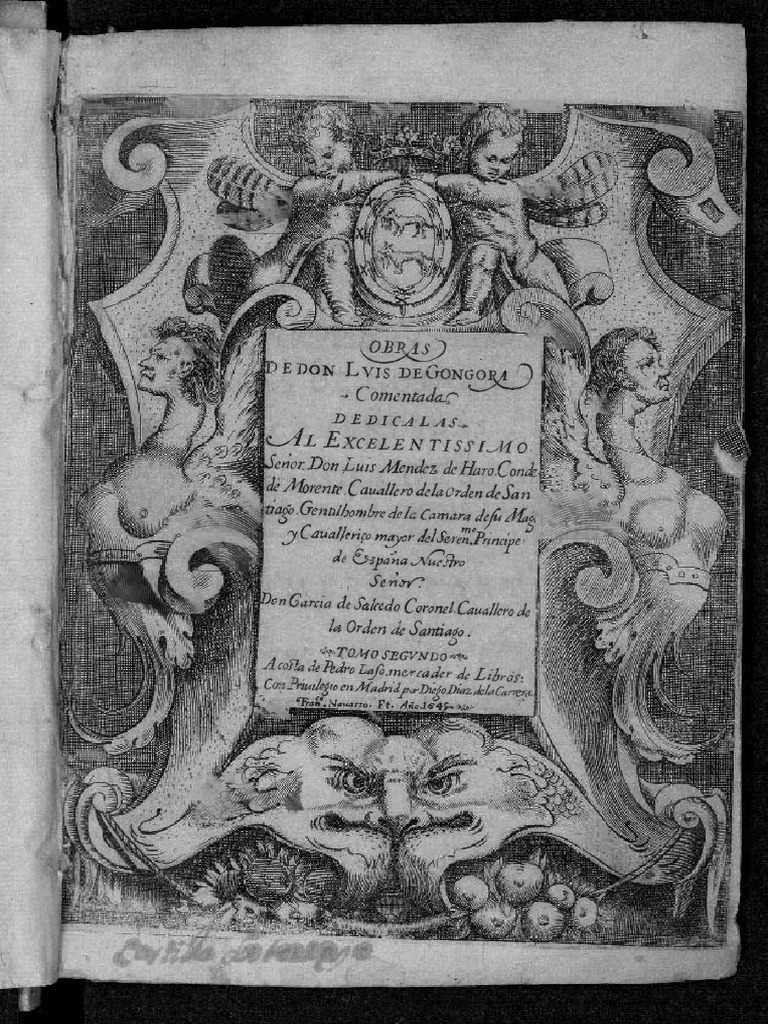 OBRAS
DE DON LVIS DE GONGORA
Comentadas
DEDICALAS
AL EXCELENTISSIMO
Señor. Don Luis Mendez de Haro. Conde
de Morente. Cauallero de la Orden de San
tiago. Gentilhombre de la Camara de su Mag.
y Caualleriço mayor del Seren.mo Principe
de España Nuestro
Señor.
Don Garcia de Salcedo Coronel. Cauallero de
la Orden de Santiago.
TOMO SEGVNDO
A costa de Pedro Laso, mercader de Libros:
Con Priuilegio en Madrid por Diego Diaz de la Carrera
Fran.co Navarro. Ft. Año